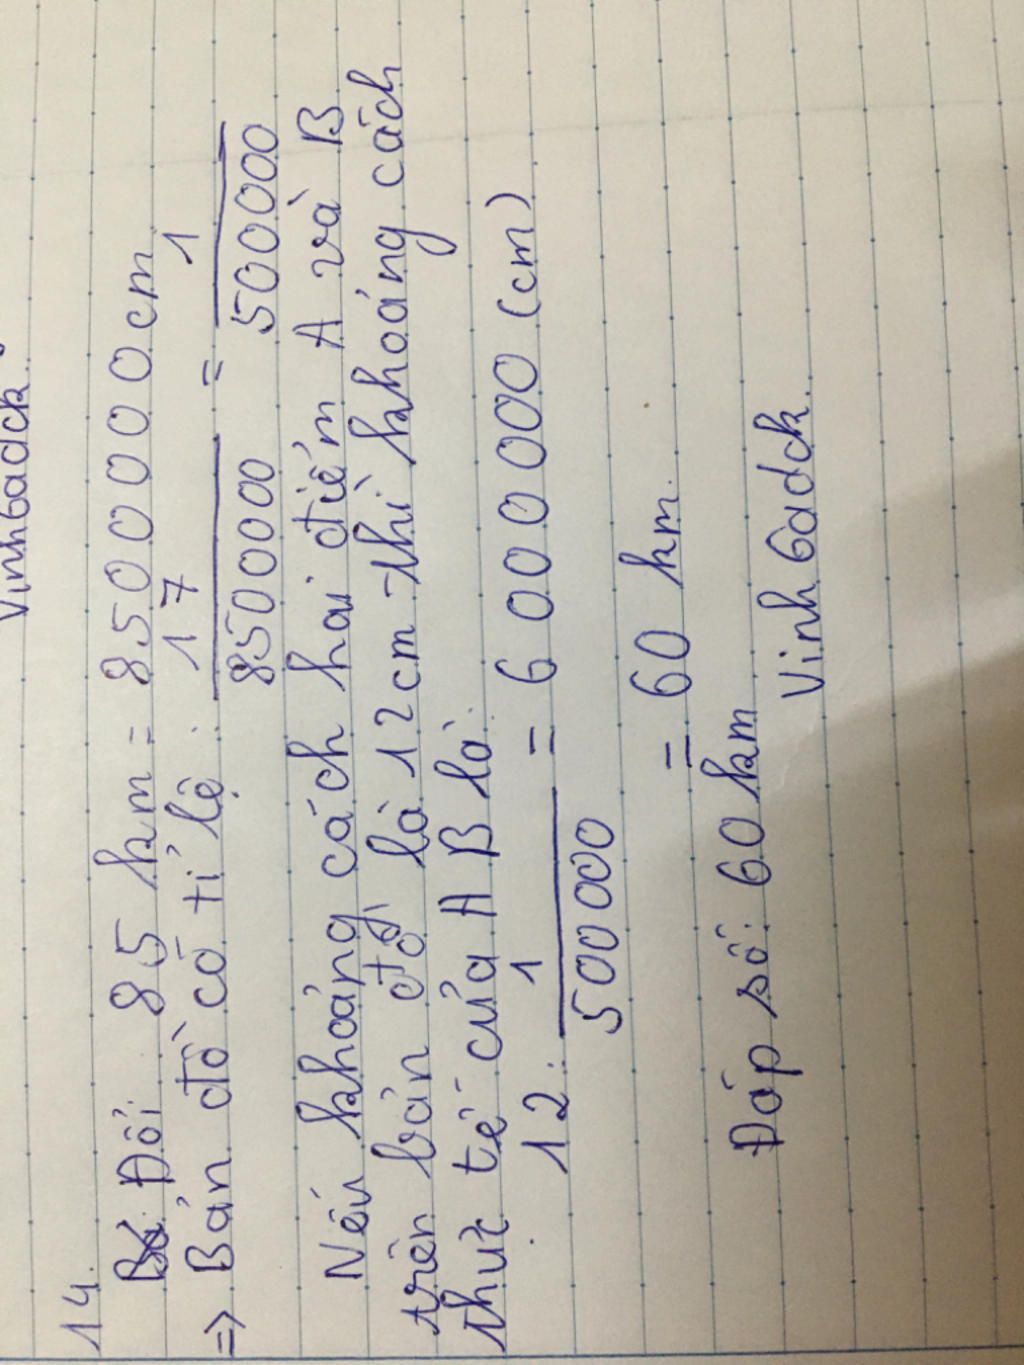 Vinh6adck.
14.
Đổi 85 km = 8500000cm
=> Bản đồ có tỉ lệ: 17/8500000 = 1/500000
Nếu khoảng cách hai điểm A và B
trên bản đồ là 12cm thì khoảng cách
thực tế của AB là:
12 : 1/500000 = 6 000 000 (cm)
= 60 km.
Đáp số: 60 km
Vinh 6adck.